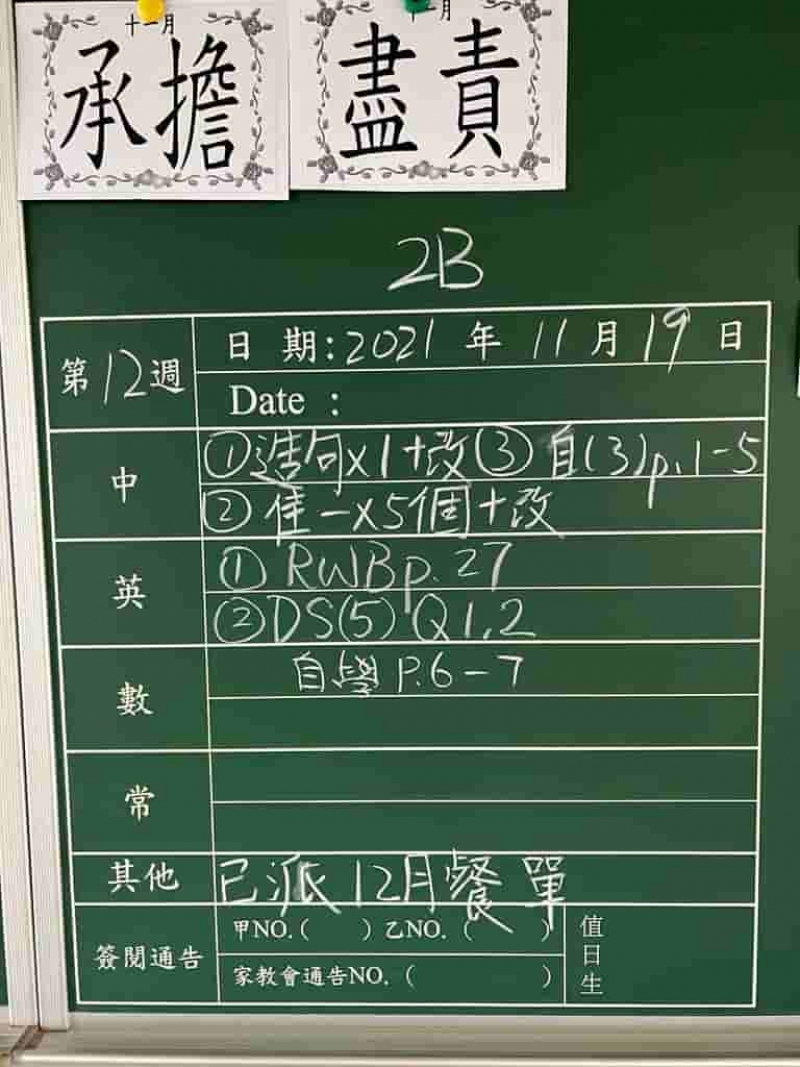 十一月
承擔
十一月
盡責
2B
第12週
日 期：2021 年 11 月 19 日
Date :
中
①造句x1+改 ③ 自(3)p.1-5
② 隹一x5個+改
英
① RWB p. 27
② DS(5) Q1,2
數
自學 P.6-7
常
其他
已派 12月餐單
簽閱通告
甲NO.( ) 乙NO. ( )
家教會通告NO. ( )
值日生